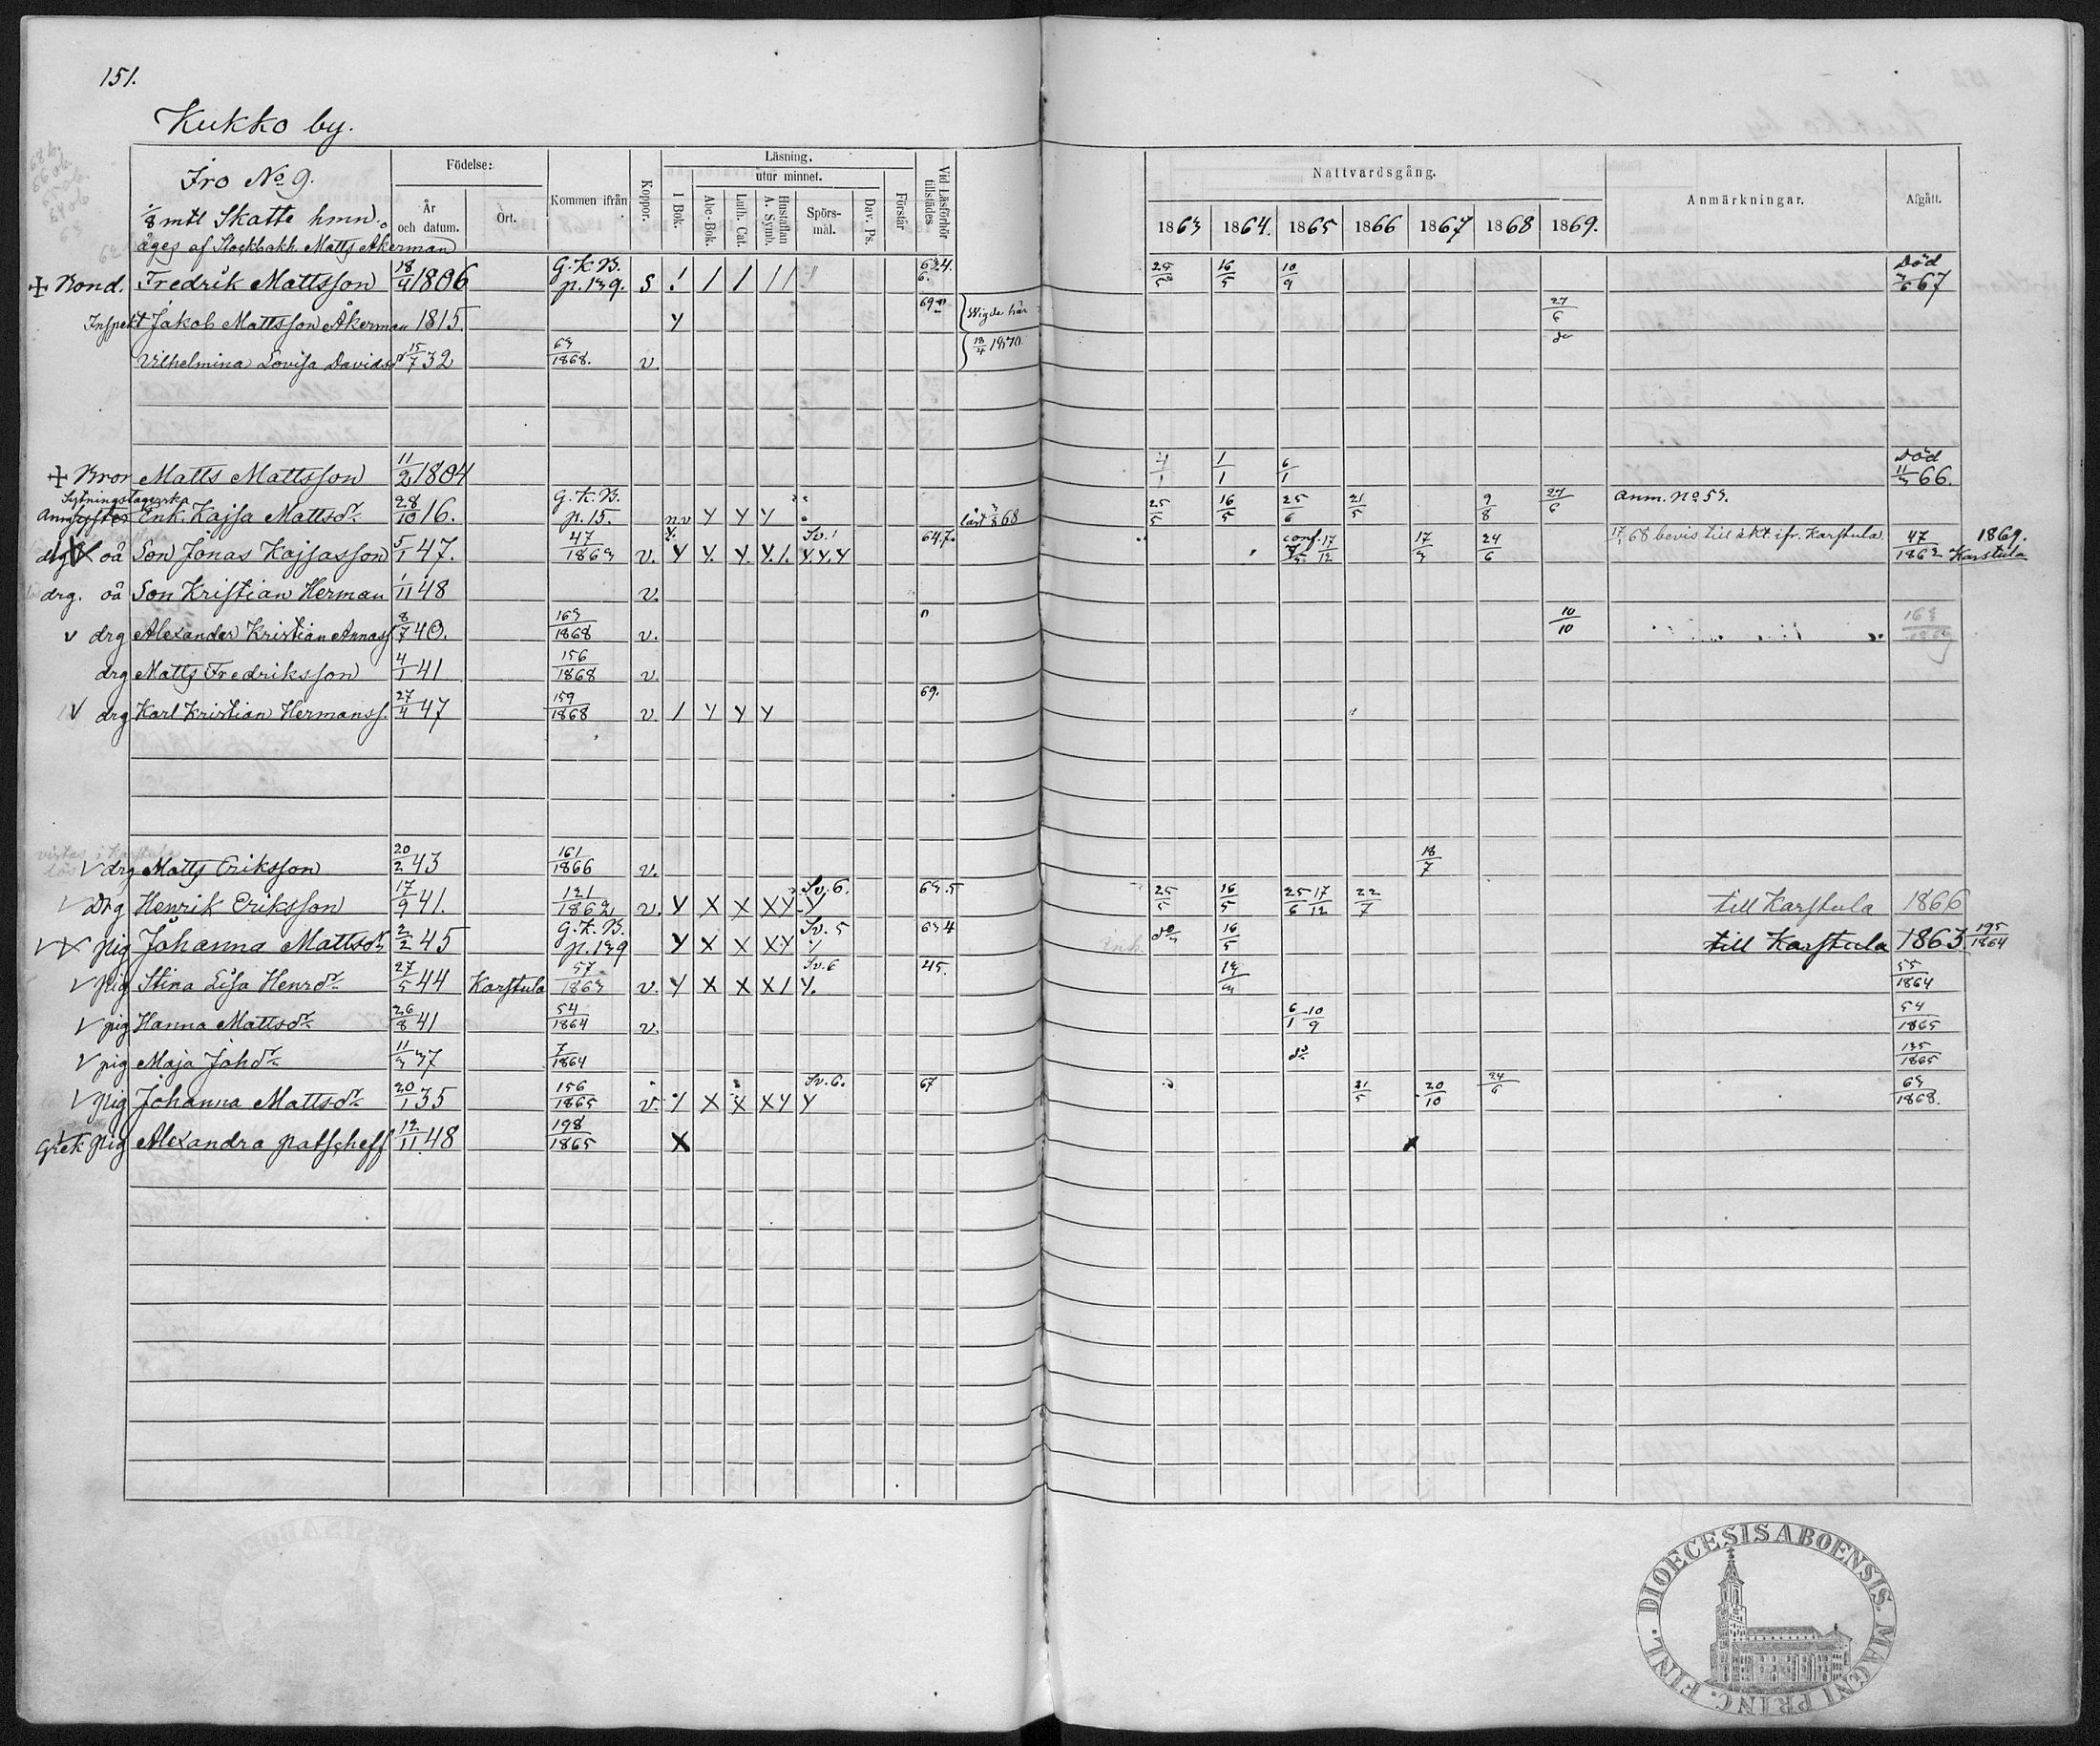 151.
Kukko by.
Iro No 9.
1/8 mtl Skatte hmn.
äges af Stockbokh. Matts Åkerman
Födelse:
År och datum.
Ort.
Kommen ifrån
Koppor.
Läsning.
I Bok.
utur minnet.
Abc-Bok.
Luth. Cat.
Hustaflan A. Symb.
Spörs-mål.
Dav. Ps.
Förstår
Vid Läsförhör tillstädes
Nattvardsgång.
1863 1864. 1865 1866 1867 1868 1869.
Anmärkningar.
Afgått.
+ Bond. Fredrik Mattsson 18/9 1806 G.K.B. p.139. S 25/5 16/5 10/9 Död 67
Inspekt Jakob Mattsson Åkerman 1815. Y 69 Wigde här 27/6
Vilhelmina Lovisa Davidsdr 15/7 32 63/1868. v. 13/4 1870 do
+ Bror Matts Mattsson 11/2 1804 1/1 6/1 Död 66.
Sytningstagerska
Enk. Kajsa Mattsdr 28/10 16. G.K.B. p.15. n.v Y Y Y läst 68 25/5 16/5 25/6 21/5 9/8 27/6 anm. No 53.
drg oä Son Jonas Kajsasson 5/1 47. 47/1863 v. Y Y. Y. Y.1. Y.Y.Y 64.7. conf. 17/12 17/3 24/6 68 bevis till äkt. ifr. Karstula. 1869. Karstula
drg. oä Son Kristian Herman 1/11 48 v.
v drg Alexander Kristian Annass. 8/7 40. 163/1868 v. 10/10
drg Matts Fredriksson 4/1 41 156/1868 v.
v drg Karl Kristian Hermanss. 27/4 47 159/1868 v. / Y Y Y 69.
v drg Matts Eriksson 20/2 43 161/1866 v. 18/7
drg Henrik Eriksson 17/9 41. 121/1862 v. Y X X XY Y Sv. 6. 63.5 25/5 16/5 25/6 17/12 22/7 till Karstula 1866
v pig Johanna Mattsdr 2/2 45 G.K.B. p.139 Y X X XY Sv. 5 634 16/5 till Karstula 1863 195/1864
v pig Stina Lisa Henrdr 27/5 44 Karstula 57/1863 v. Y X X X/ Y. Sv. 6 45. 55/1864
v pig Hanna Mattsdr 26/8 41 54/1864 v. 6/1 10/9 54/1865
v pig Maja Johdr 11/3 37 7/1864 do 135/1865
v pig Johanna Mattsdr 20/1 35 156/1865 v. X X XY Y Sv. 6. 67 21/5 20/10 24/6 63/1868.
Grek pig Alexandra Patscheff 12/11 48 198/1865 X
DIOECESIS ABOENSIS. MAGNI PRINC. FINL.